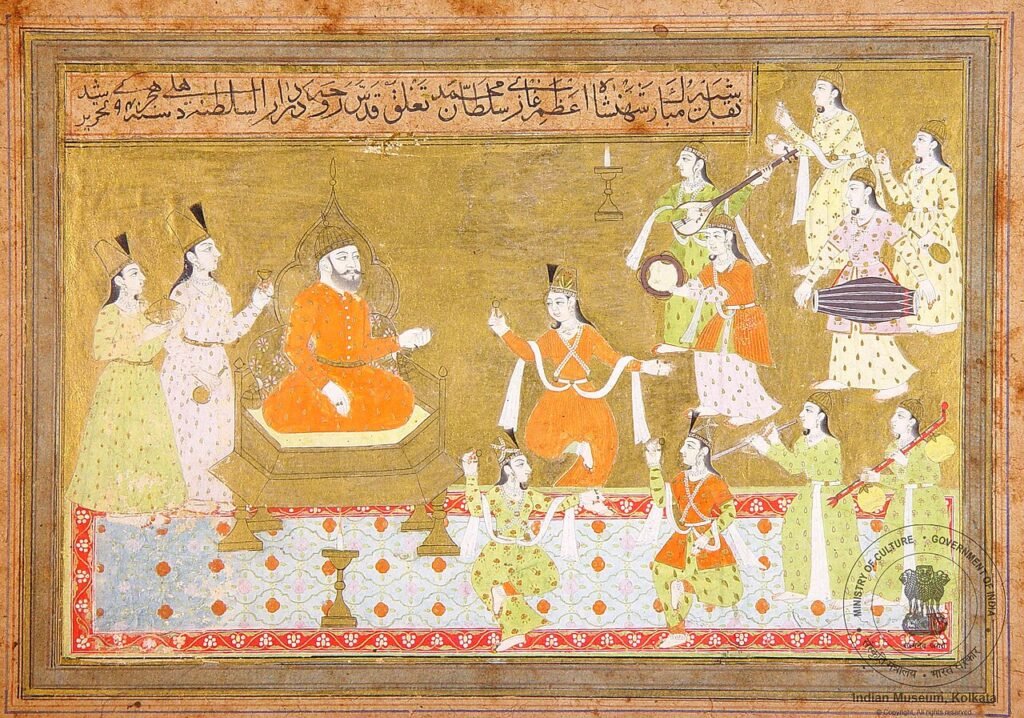 مبارک شهنشاه اعظم غازی سلطان محمد تغلق قدس روحه در دار السلطنة دهلے سنه هجرے تحریر شد
MINISTRY OF CULTURE • GOVERNMENT OF INDIA
संस्कृति मंत्रालय • भारत सरकार
Indian Museum, Kolkata
© Copyright, All rights reserved.